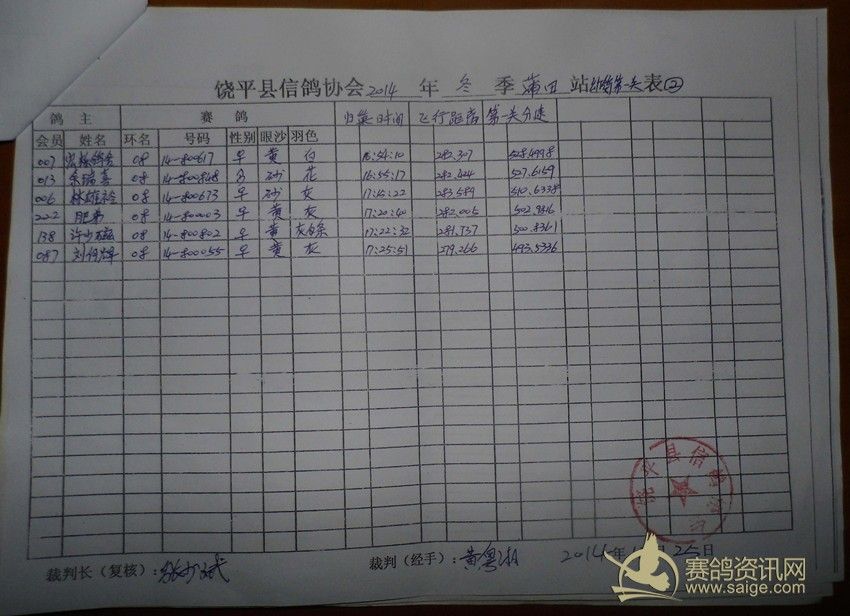 饶平县信鸽协会2014年冬季莆田站 表②
鸽主 赛鸽 归巢时间 飞行距离 第一关分速
会员 姓名 环名 号码 性别 眼沙 羽色
007 08 14-800617 黄 白 16:54:10 282.307 528.4998
013 余瑞喜 08 14-800848 砂 花 16:55:17 282.424 527.6159
006 林雄 08 14-800673 砂 灰 17:15:22 283.589 510.6338
222 胜弟 08 14-800003 黄 灰 17:20:40 282.005 502.9816
138 许少 08 14-800802 黄 灰 17:22:32 281.737 500.8361
087 刘 08 14-800055 黄 灰 17:25:51 279.266 493.5336
裁判长(复核): 裁判(经手): 黄粤 2014年 25日
赛鸽资讯网
www.saige.com